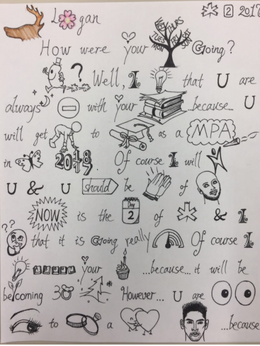 2 2017
L gan
How were your Going?
? Well, I that U are
always with your ...because... U
will get to as a MPA
in 2018 Of course I will
U & U should be of
NOW is the 2 of & I
?? that it is Going really Of course I
your ...because... it will be
becoming 30 However... U are
to a ...because